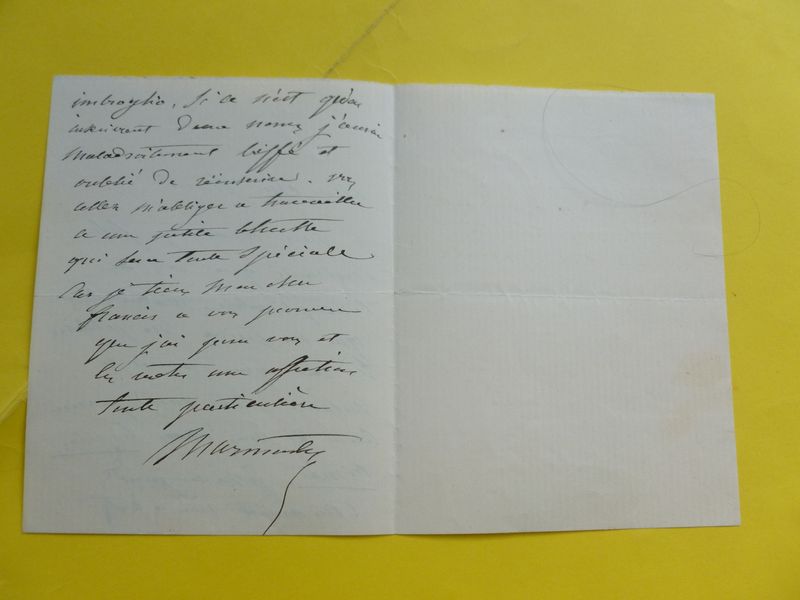 imbroglio, si ce n'est qu'en
inscrivant deux noms j'aurai
maladroitement biffé et
oublié de réinscrire. vous
allez m'obliger a travailler
a une petite
qui sera toute spéciale
Car je tiens Mon cher
francis a vous prouver
que j'ai pour vous et
les votres une affection
toute particulière
Marmontel